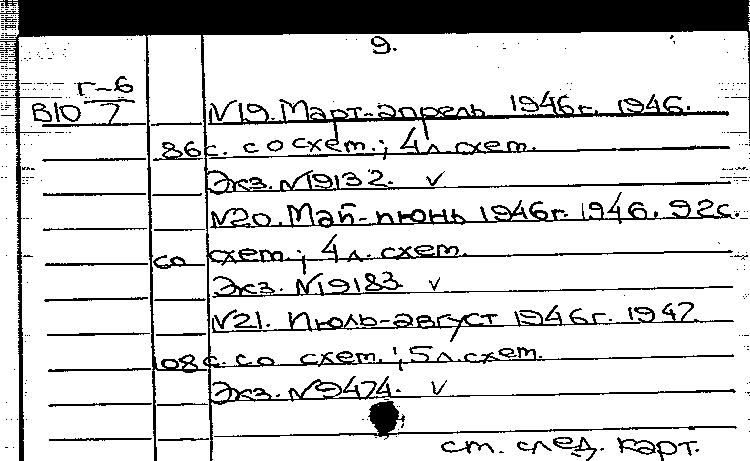 9.
Г-6
В10 7
№19. Март-апрель 1946г. 1946.
86с. со схем.; 4л. схем.
Экз. №19132. ✓
№20. Май-июнь 1946г. 1946. 92с.
со схем.; 4л. схем.
Экз. №19183. ✓
№21. Июль-август 1946г. 1947.
108с. со схем.; 5л. схем.
Экз. №9474. ✓
см. след. карт.